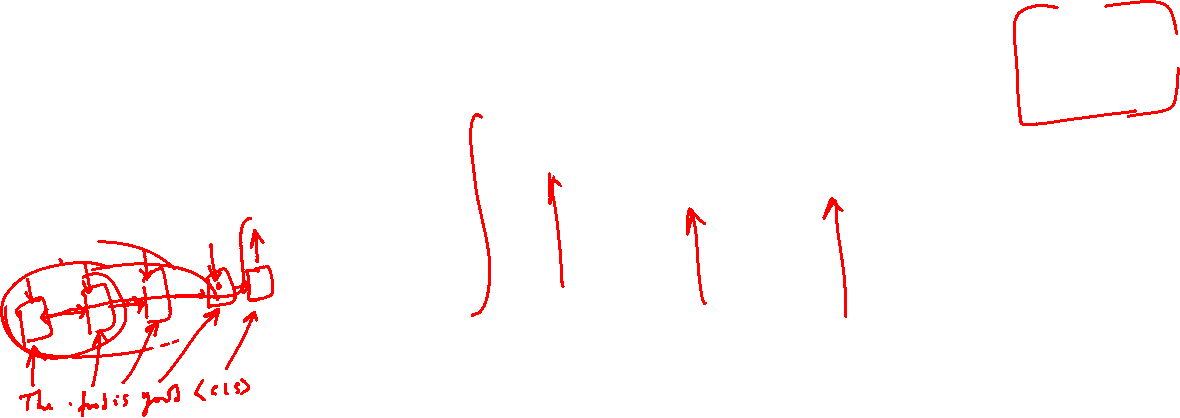 The food is good <CLS>